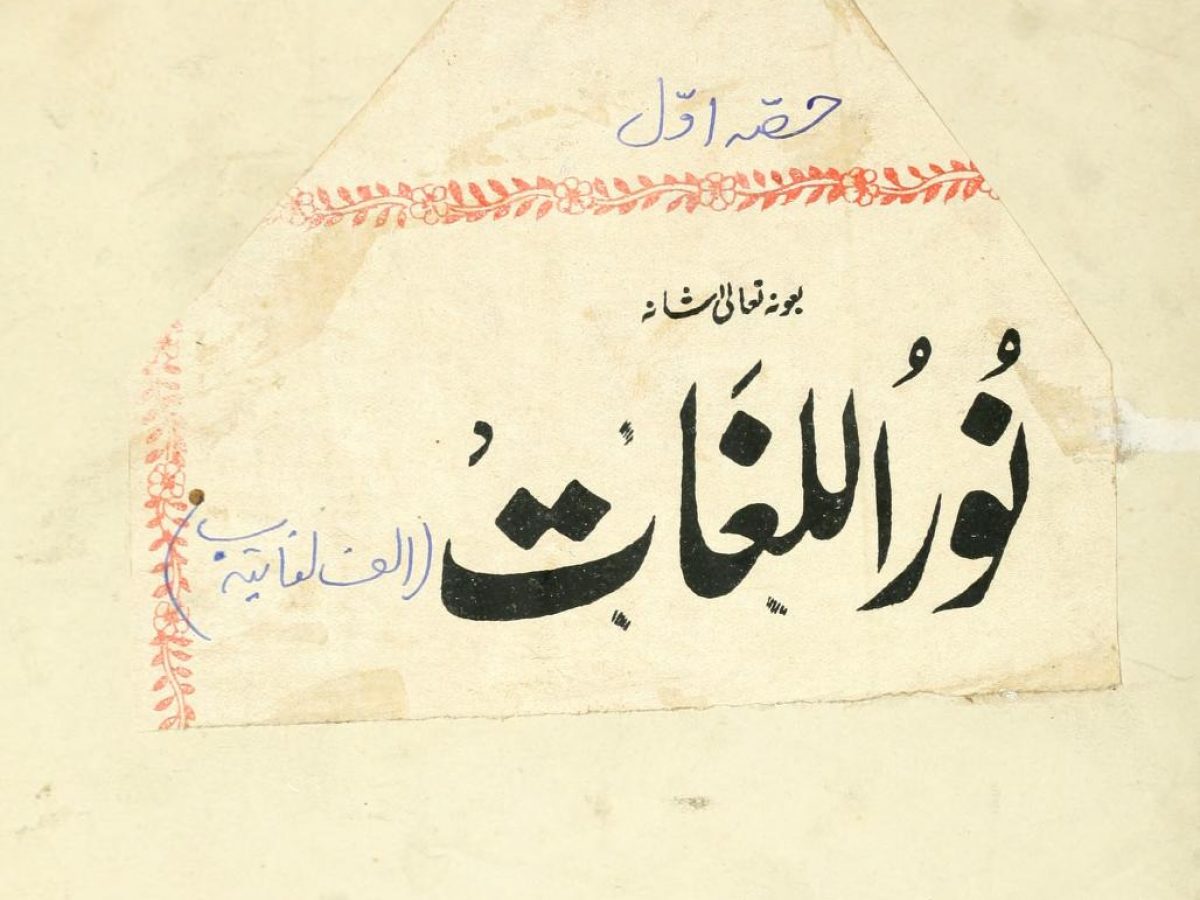 حصّہ اوّل
بعونہ تعالیٰ شانہ
نُورُ اللغَاتُ
(الف لغایتہ ب)